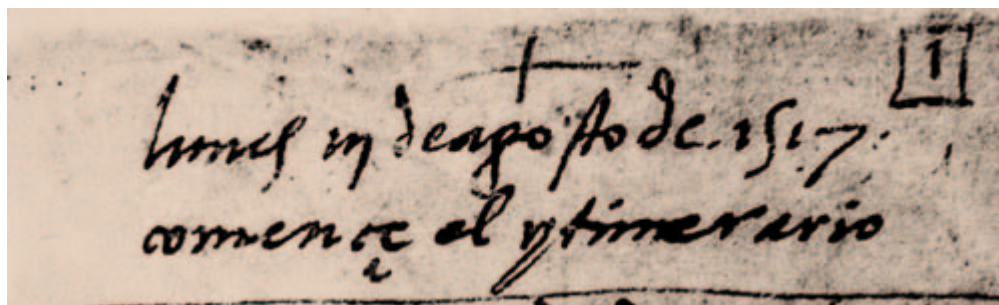 1
lunes iij de agosto de .1517.
comence el ytinerario